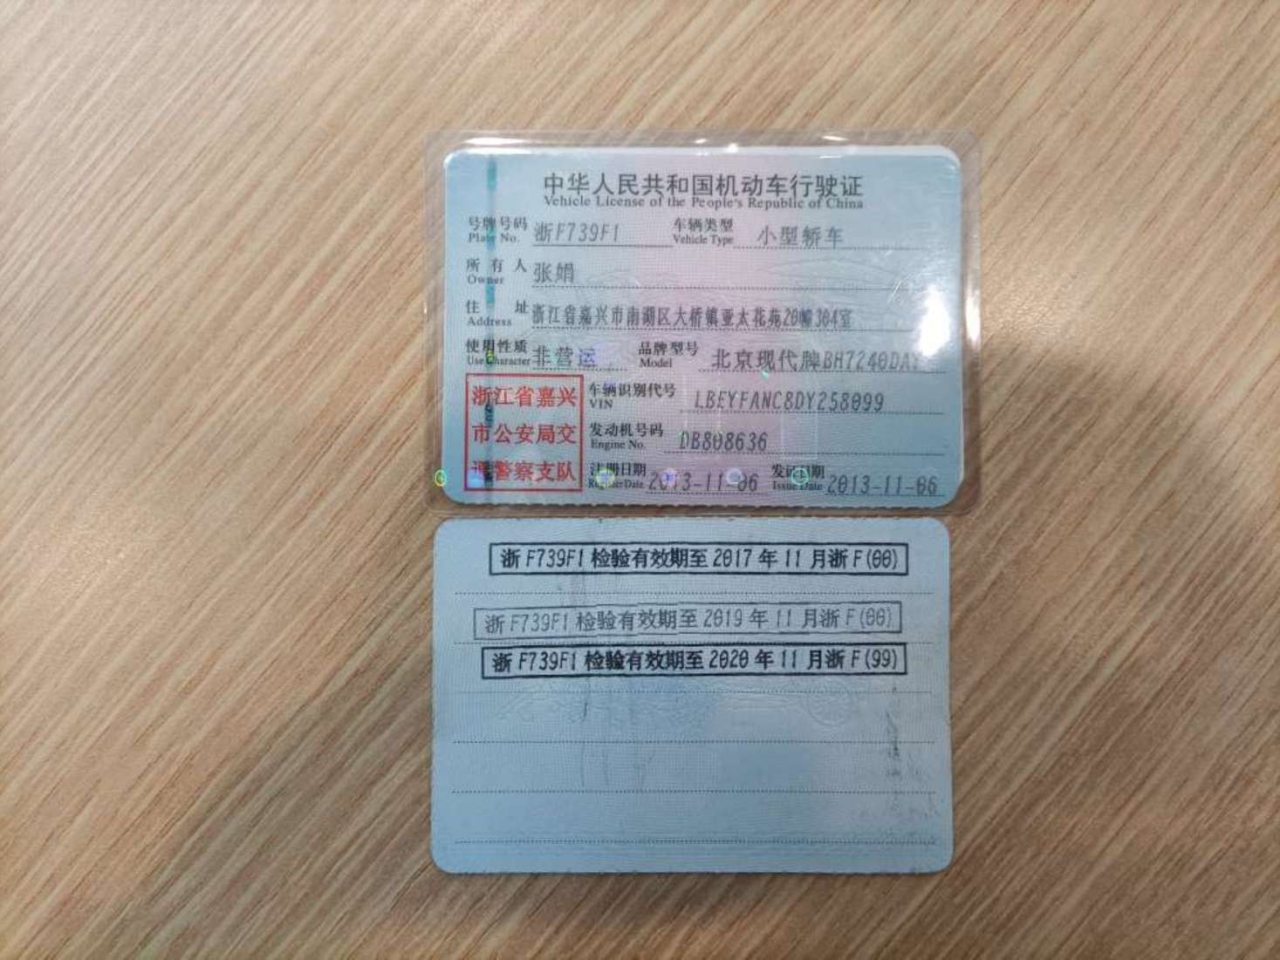 中华人民共和国机动车行驶证
Vehicle License of the People's Republic of China
号牌号码 浙F739F1 车辆类型 小型轿车
Plate No. Vehicle Type
所有人 张娟
Owner
住址 浙江省嘉兴市南湖区大桥镇亚太花苑20幢304室
Address
使用性质 非营运 品牌型号 北京现代牌BH7240DAY
Use Character Model
浙江省嘉兴
市公安局交
通警察支队
车辆识别代号 LBEYFANC8DY258099
VIN
发动机号码 DB808636
Engine No.
注册日期 2013-11-06 发证日期 2013-11-06
Register Date Issue Date
浙F739F1检验有效期至2017年11月浙F(00)
浙F739F1检验有效期至2019年11月浙F(00)
浙F739F1检验有效期至2020年11月浙F(99)